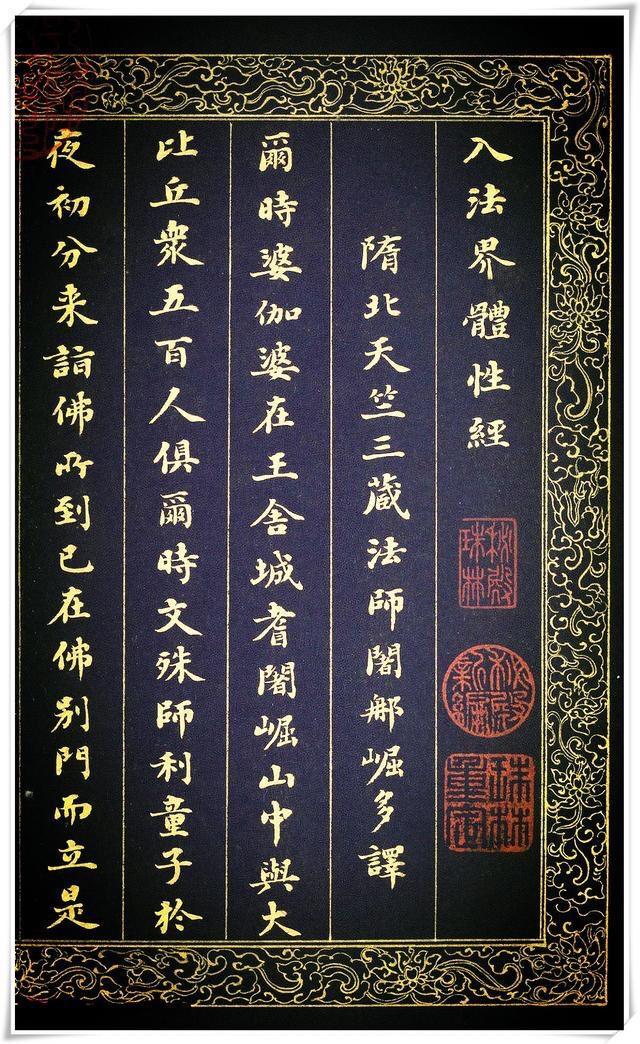 入法界體性經
隋北天竺三藏法師闍那崛多譯
爾時婆伽婆在王舍城耆闍崛山中與大
比丘衆五百人俱爾時文殊師利童子於
夜初分来詣佛所到已在佛别門而立是
秘殿珠林
秘殿新編
珠林重定